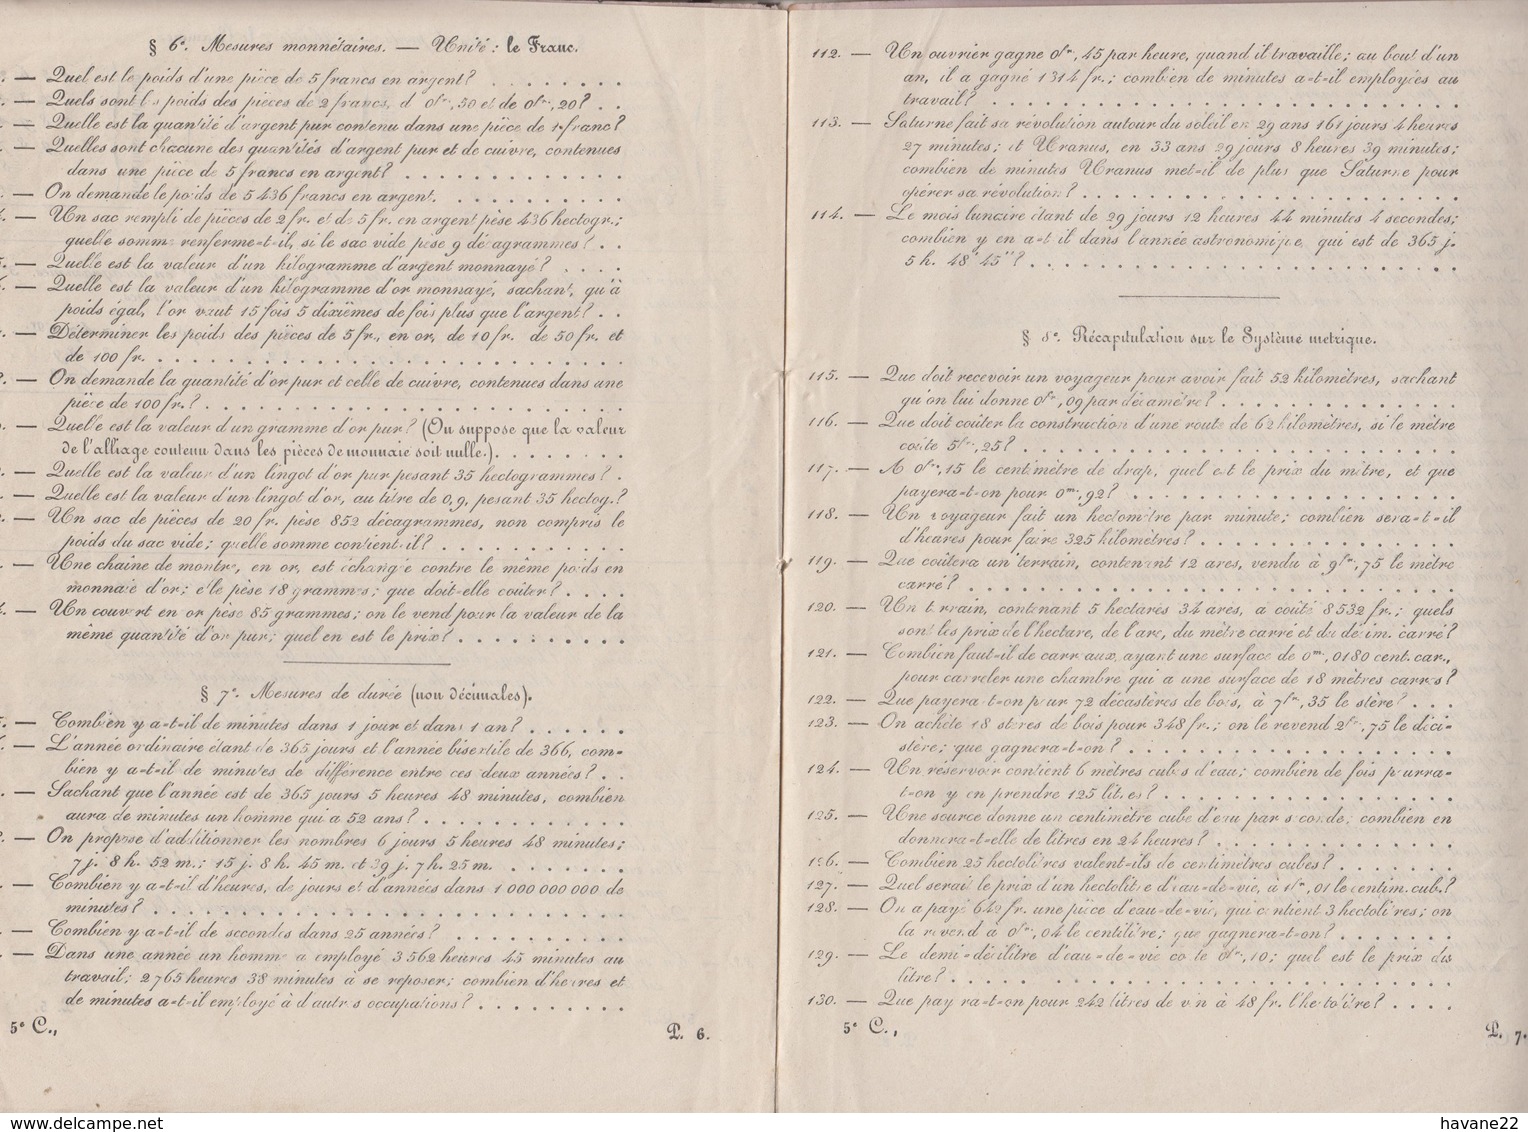 § 6e. Mesures monnétaires. — Unité : le Franc.
. — Quel est le poids d'une pièce de 5 francs en argent?
. — Quels sont les poids des pièces de 2 francs, d 0fr,50 et de 0fr,20?
. — Quelle est la quantité d'argent pur contenu dans une pièce de 1 franc?
. — Quelles sont chacune des quantités d'argent pur et de cuivre, contenues
dans une pièce de 5 francs en argent?
. — On demande le poids de 5 436 francs en argent.
. — Un sac rempli de pièces de 2 fr. et de 5 fr. en argent pèse 436 hectogr.;
quelle somme renferme=t=il, si le sac vide pèse 9 décagrammes?
. — Quelle est la valeur d'un kilogramme d'argent monnayé?
. — Quelle est la valeur d'un kilogramme d'or monnayé, sachant, qu'à
poids égal, l'or vaut 15 fois 5 dixièmes de fois plus que l'argent?
. — Déterminer les poids des pièces de 5 fr., en or, de 10 fr. de 50 fr. et
de 100 fr.
. — On demande la quantité d'or pur et celle de cuivre, contenues dans une
pièce de 100 fr.?
. — Quelle est la valeur d'un gramme d'or pur? (On suppose que la valeur
de l'alliage contenu dans les pièces de monnaie soit nulle.)
. — Quelle est la valeur d'un lingot d'or pur pesant 35 hectogrammes?
. — Quelle est la valeur d'un lingot d'or, au titre de 0,9, pesant 35 hectog.?
. — Un sac de pièces de 20 fr. pèse 852 décagrammes, non compris le
poids du sac vide; quelle somme contient=il?
. — Une chaîne de montre, en or, est échangée contre le même poids en
monnaie d'or; elle pèse 18 grammes; que doit=elle coûter?
. — Un couvert en or pèse 85 grammes; on le vend pour la valeur de la
même quantité d'or pur; quel en est le prix?
§ 7e. Mesures de durée (non décimales).
. — Combien y a=t=il de minutes dans 1 jour et dans 1 an?
. — L'année ordinaire étant de 365 jours et l'année bisextile de 366, com=
bien y a=t=il de minutes de différence entre ces deux années?
. — Sachant que l'année est de 365 jours 5 heures 48 minutes, combien
aura de minutes un homme qui a 52 ans?
. — On propose d'additionner les nombres 6 jours 5 heures 48 minutes;
7 j. 8 h. 52 m.; 15 j. 8 h. 45 m. et 39 j. 7 h. 25 m.
. — Combien y a=t=il d'heures, de jours et d'années dans 1 000 000 000 de
minutes?
. — Combien y a=t=il de secondes dans 25 années?
. — Dans une année un homme a employé 3 562 heures 45 minutes au
travail; 2 765 heures 38 minutes à se reposer; combien d'heures et
de minutes a=t=il employé à d'autres occupations?
5e C.,
P. 6.
112. — Un ouvrier gagne 0fr,45 par heure, quand il travaille; au bout d'un
an, il a gagné 1314 fr.; combien de minutes a=t=il employées au
travail?
113. — Saturne fait sa révolution autour du soleil en 29 ans 161 jours 4 heures
27 minutes; et Uranus, en 33 ans 29 jours 8 heures 39 minutes;
combien de minutes Uranus met=il de plus que Saturne pour
opérer sa révolution?
114. — Le mois lunaire étant de 29 jours 12 heures 44 minutes 4 secondes;
combien y en a=t=il dans l'année astronomique, qui est de 365 j.
5 h. 48' 45"?
§ 8e. Récapitulation sur le Système metrique.
115. — Que doit recevoir un voyageur pour avoir fait 52 kilomètres, sachant
qu'on lui donne 0fr,09 par décamètre?
116. — Que doit coûter la construction d'une route de 62 kilomètres, si le mètre
coûte 5fr,25?
117. — A 0fr,15 le centimètre de drap, quel est le prix du mètre, et que
payera=t=on pour 0m,92?
118. — Un voyageur fait un hectomètre par minute; combien sera=t=il
d'heures pour faire 325 kilomètres?
119. — Que coûtera un terrain, contenant 12 ares, vendu à 9fr,75 le mètre
carré?
120. — Un terrain, contenant 5 hectares 34 ares, a coûté 8532 fr.; quels
sont les prix de l'hectare, de l'are, du mètre carré et du décim. carré?
121. — Combien faut=il de carreaux, ayant une surface de 0m,0180 cent. car.,
pour carreler une chambre qui a une surface de 18 mètres carrés?
122. — Que payera t=on pour 72 décastères de bois, à 7fr,35 le stère?
123. — On achète 18 stères de bois pour 348 fr.; on le revend 2fr,75 le déci=
stère; que gagnera=t=on?
124. — Un réservoir contient 6 mètres cubes d'eau; combien de fois pourra=
t=on y en prendre 125 litres?
125. — Une source donne un centimètre cube d'eau par seconde; combien en
donnera=t=elle de litres en 24 heures?
126. — Combien 25 hectolitres valent=ils de centimètres cubes?
127. — Quel serait le prix d'un hectolitre d'eau=de=vie, à 1fr,01 le centim. cub.?
128. — On a payé 642 fr. une pièce d'eau=de=vie, qui contient 3 hectolitres; on
la revend à 0fr,04 le centilitre; que gagnera=t=on?
129. — Le demi=décilitre d'eau=de=vie coûte 0fr,10; quel est le prix du
litre?
130. — Que payera=t=on pour 242 litres de vin à 48 fr. l'hectolitre?
5e C.,
P. 7.
havane22